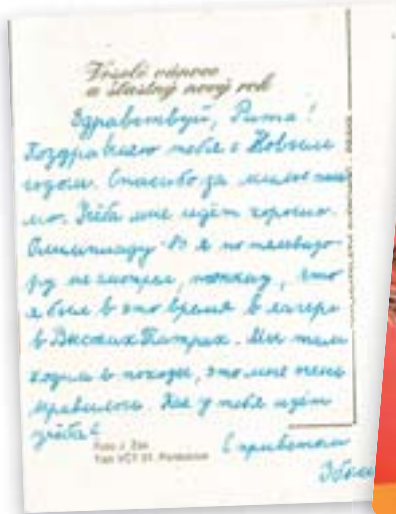 Veselé vánoce
a šťastný nový rok
Здравствуй, Рита!
Поздравляю тебя с Новым
годом. Спасибо за милое пись
мо. Учёба мне идёт хорошо.
Олимпиаду-80 я по телевизо-
ру не смотрел, потому, что
я был в это время в лагере
в Высоких Татрах. Мы там
ходили в походы, это мне очень
нравилось. Как у тебя идёт
учёба?
Foto J.
Tisk VČT 01, Pardubice
С приветом